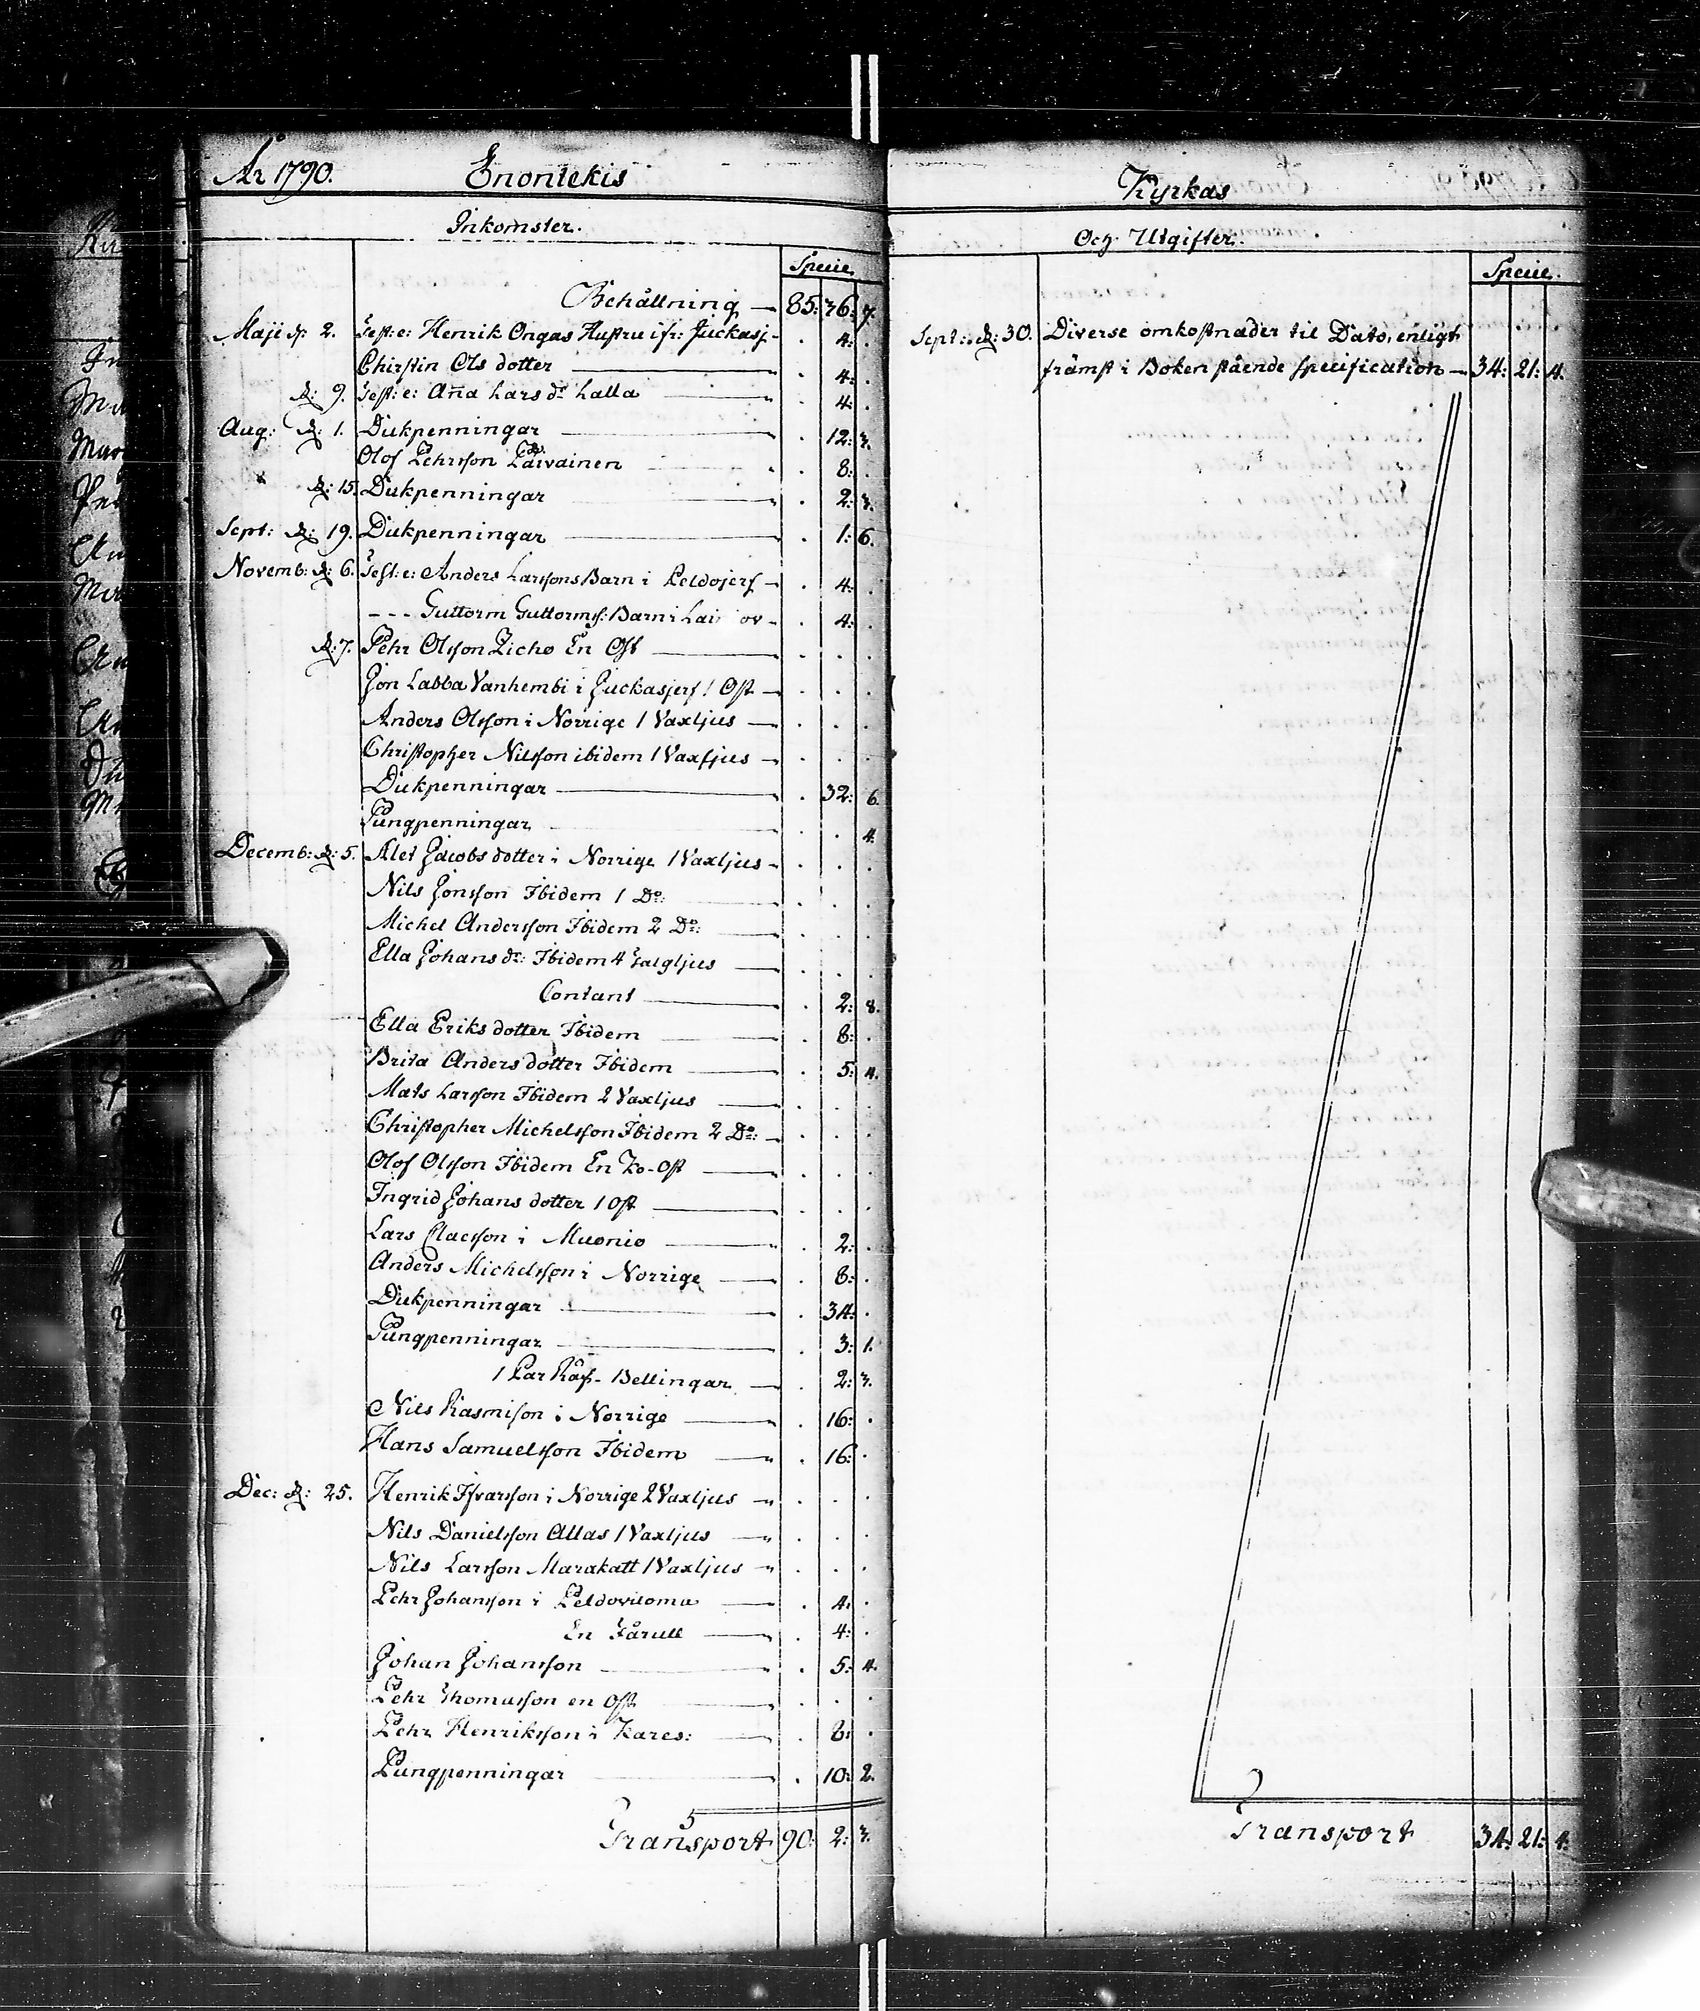 År 1790. Enontekis
Inkomster.
Specie.
Behållning — 85: 36: 7.
Maji d: 2. Test: e: Henrik Ongas Hustru ifr: Juckasj- . 4: .
Christin Ols dotter — . 4: .
d: 9. Test: e: Aña Lars dr Lalla — . 4: .
Aug: d: 1. Dukpenningar — . 12: 3.
Olof Pehrsson Päivainen . 8: .
d: 15. Dukpenningar — . 2: 3.
Sept: d: 19. Dukpenningar — . 1: 6.
Novemb: d: 6. Test: e: Anders Larssons Barn i Peldojerf — . 4: .
- - - Guttorm Guttormss: Barn i — . 4: .
d: 7. Pehr Olsson En Ost — . . .
Jon Labba Vanhembi i Juckasjerf 1 Ost — . . .
Anders Olsson i Norrige 1 Vaxljus — . . .
Christopher Nilsson ibidem 1 Vaxljus — . . .
Dukpenningar — . 32: 6.
Pungpenningar — . . 4.
Decemb: d: 5. Alet Jacobs dotter i Norrige 1 Vaxljus — . . .
Nils Jonsson Ibidem 1 Do: — . . .
Michel Andersson Ibidem 2 Do: — . . .
Ella Johans dr: Ibidem 4 Talgljus — . . .
Contant — . 2: 8.
Ella Eriks dotter Ibidem — . 8: .
Brita Anders dotter Ibidem — . 5: 4.
Mats Larsson Ibidem 2 Vaxljus — . . .
Christopher Michelsson Ibidem 2 Do: — . . .
Olof Olsson Ibidem En Ko-Ost — . . .
Ingrid Johans dotter 1 Ost — . . .
Lars Claesson i Muonio — . 2: .
Anders Michelsson i Norrige — . 8: .
Dukpenningar — . 34: .
Pungpenningar — . 3: 1.
1 Par Räf-Bellingar — . 2: 3.
Nils Rasmisson i Norrige — . 16: .
Hans Samuelsson Ibidem — . 16: .
Dec: d: 25. Henrik Ifvarsson i Norrige 2 Vaxljus — . . .
Nils Danielsson Allas 1 Vaxljus — . . .
Nils Larsson Marakatt 1 Vaxljus — . . .
Pehr Johansson i Peldovuoma — . 4. .
En Fårull — . 4: .
Johan Johansson — . 5: 4.
Pehr Thomasson en Ost — . . .
Pehr Henriksson i Kares: — . 8: .
Pungpenningar — . 10: 2.
Transport 90: 2: 3.
Kyrkas
Och Utgifter.
Specie.
Sept: d: 30. Diverse omkostnader til Dato, enligt
främst i Boken stående specification — 34: 21: 4.
Transport 34: 21: 4.